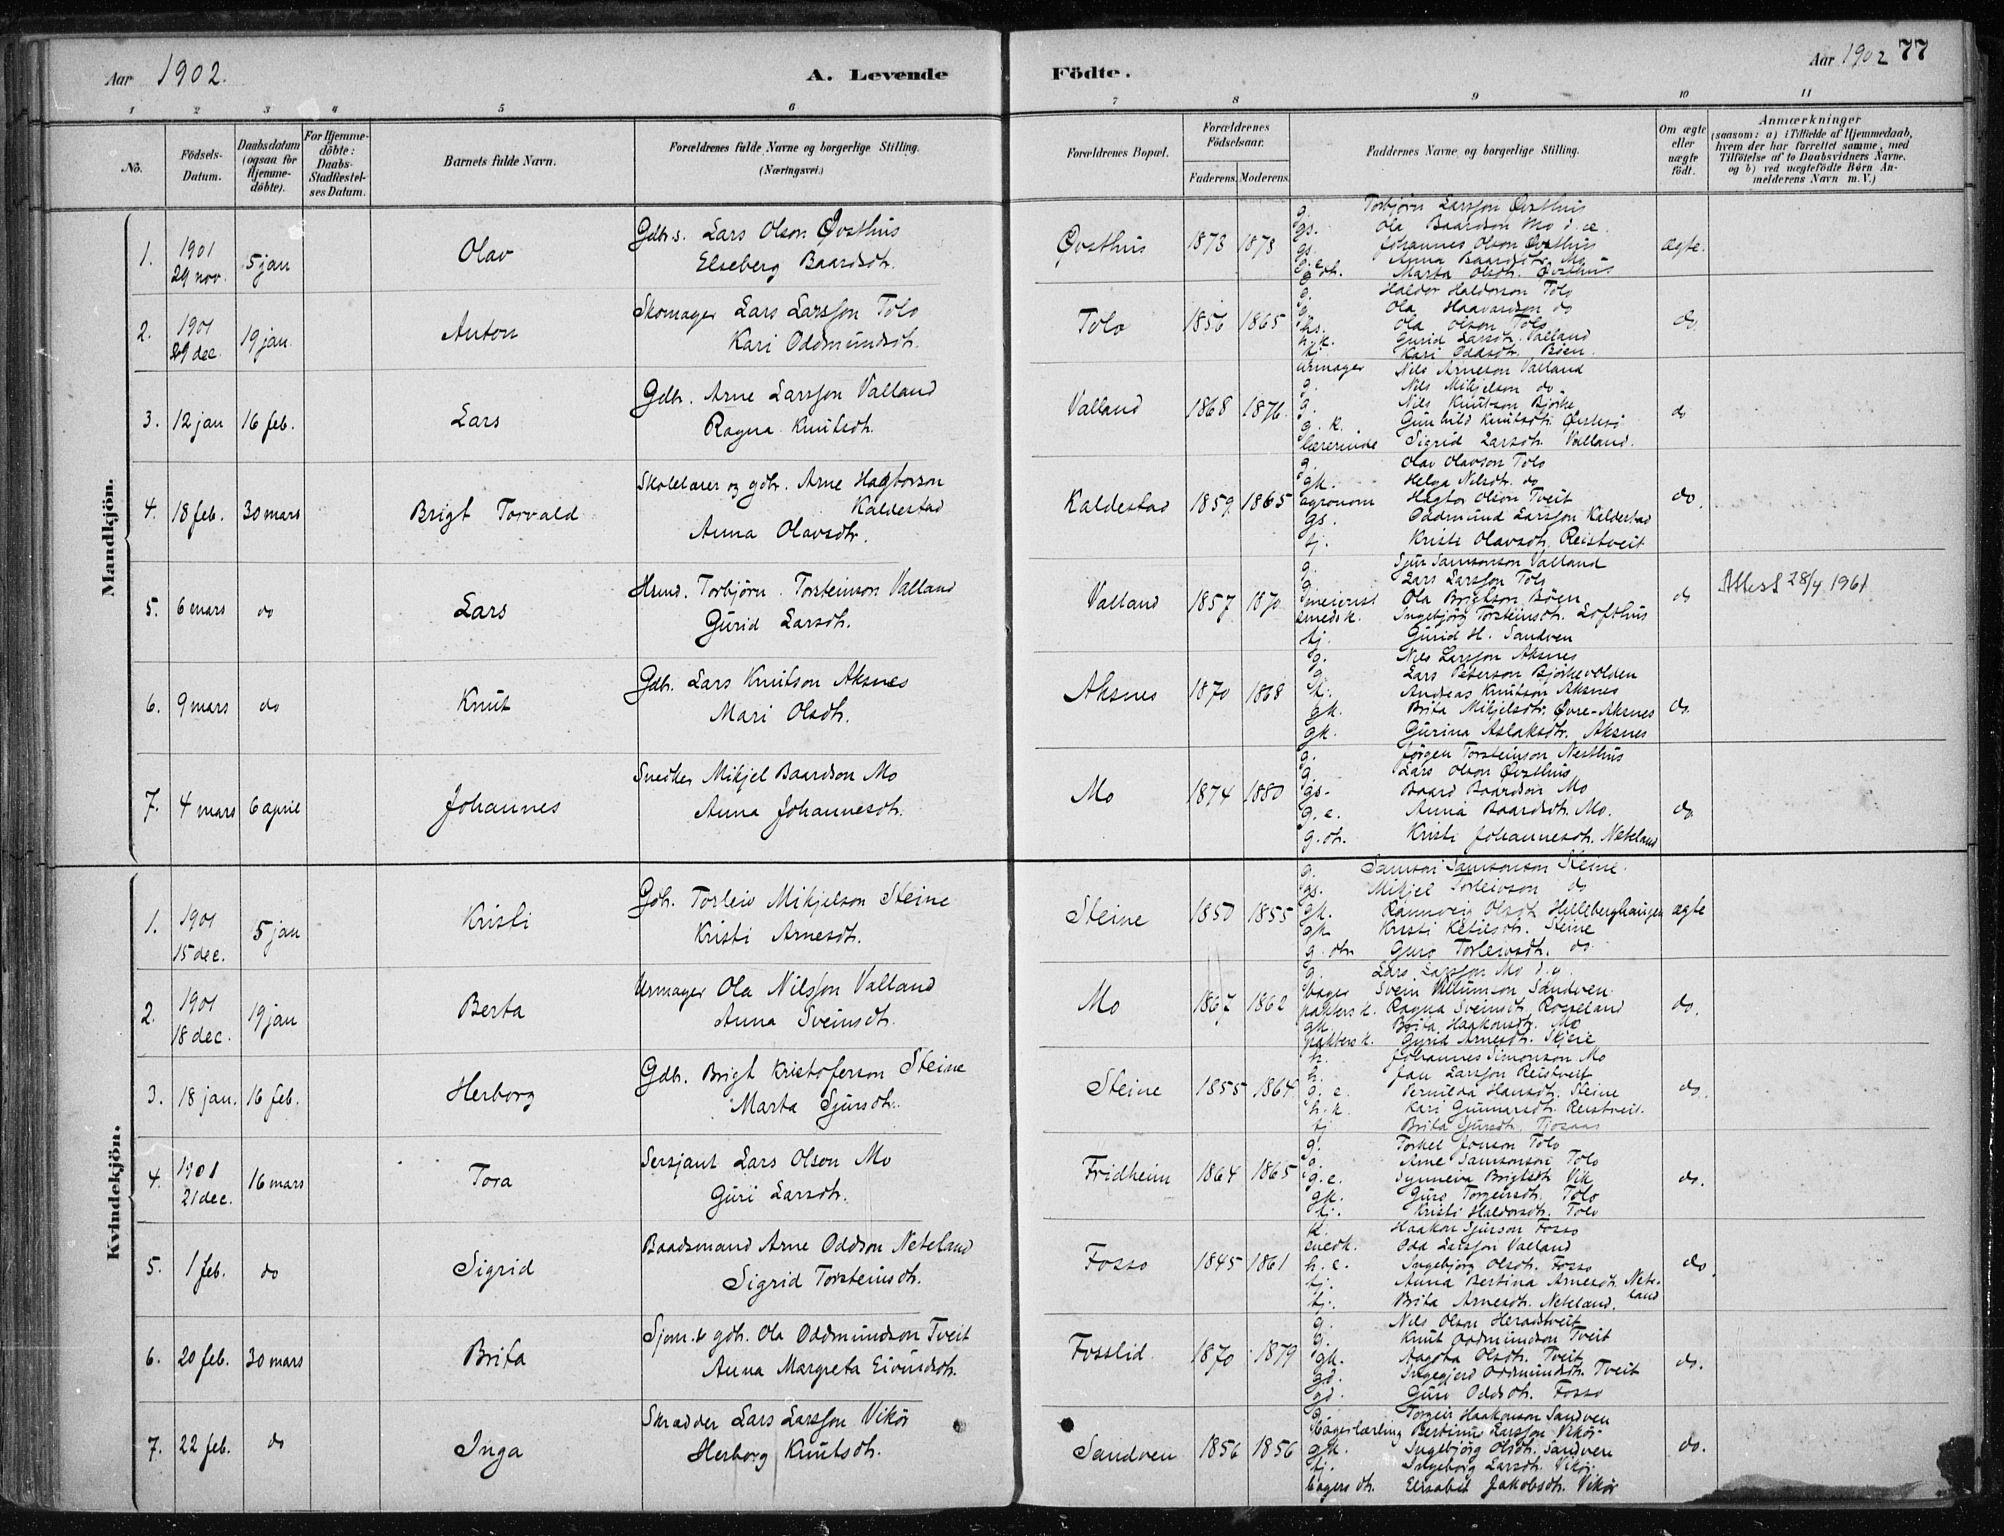 Aar 1902.
A. Levende
Födte.
Aar 1902
77
1 2 3 4 5 6 7 8 9 10 11
No.
Födsels-Datum.
Daabsdatum (ogsaa for Hjemme-döbte).
For Hjemme-döbte: Daabs-Stadfæstel-ses Datum.
Barnets fulde Navn.
Forældrenes fulde Navne og borgerlige Stilling.
(Næringsvei.)
Forældrenes Bopæl.
Forældrenes Födselsaar.
Faderens. Moderens.
Faddernes Navne og borgerlige Stilling.
Om ægte eller uægte födt.
Anmærkninger
(saasom: a) i Tilfælde af Hjemmedaab,
hvem der har forrettet samme, med
Tilföielse af to Daabsvidners Navne.
og b) ved uægtefödte Börn An-
melderens Navn m. V.)
Mandkjön.
1. 1901 29 nov. 5 jan Olav
Gdbr.s. Lars Olson Øvsthus
Elseberg Baardsdtr.
Øvsthus 1873 1873
g. Torbjörn Larsson Øvsthus
gs. Ola Baardson Mo d.æ.
gs. Johannes Olson Øvsthus
g.e. Anna Baardsdtr. Mo
g.dtr. Marta Olsdtr. Øvsthus
ægte.
2. 1901 29 dec. 19 jan. Anton
Skomager Lars Larsson Tolo
Kari Oddmundsdtr.
Tolo 1856 1865
g. Haldor Haldorson Tolo
g. Ola Haavardson do
hs. Ola Olson Tolo
h.k. Gurid Larsdtr. Valland
tj. Kari Oddsdtr. Böen
do.
3. 12 jan 16 feb. Lars
Gdbr. Arne Larsson Valland
Ragna Knutsdtr.
Valland 1868 1876
urmager Nils Arneson Valland
g. Nils Mikjelson do.
g. Nils Knutson Bjotke
g.k. Gunhild Knutsdtr.
lærerinde Sigrid Larsdtr. Valland.
do
4. 18 feb. 30 mars Brigt Torvald
Skolelærer og gdbr. Arne Hagtorson
Kaldestad
Anna Olavsdtr.
Kaldestad 1859 1865
g. Olav Olavson Tolo
gk. Helga Nilsdtr. do
agronom Hagtor Olson Tveit
gs. Oddmund Larsson Kaldestad
tj. Kristi Olavsdtr. Reistveit
do.
5. 6 mars do Lars
Husmd. Torbjörn Torsteinson Valland
Gurid Larsdtr.
Valland 1857 1870
g. Sjur Samsonson Valland
g. Lars Larsson Tolo
meierist Ola Brigtson Böen
smedsk. Ingebjörg Torsteinsdtr. Lofthus
tj. Gurid H. Sandven
do
Attest 28/4 1961
6. 9 mars do Knut
Gdbr. Lars Knutson Aksnes
Mari Olsdtr.
Aksnes 1870 1868
g. Nils Larsson Aksnes
g. Lars Peterson Björkevolden
tj. Andreas Knutson Aksnes
gk. Brita Mikjelsdtr. Øvre-Aksnes
gk. Gurina Aslaksdtr. Aksnes
do.
7. 4 mars 6 april Johannes
Snedker Mikjel Baardson Mo
Anna Johannesdtr.
Mo 1874 1880
g. Jørgen Torsteinson Nesthus
g. Lars Olson Øvsthus
gs. Baard Baardson Mo
g.e. Anna Baardsdtr. Mo.
g.dtr. Kristi Johannesdtr. Neteland
do
Kvindekjön.
1. 1901 15 dec. 5 jan Kristi
Gdbr. Torleiv Mikjelson Steine
Kristi Arnesdtr.
Steine 1850 1855
g. Samson Samsonson Steine.
gs. Mikjel Torleivson do
gk. Rannveig Olsdtr. Helleberghaugen
gk. Kristi Ketilsdtr. Steine
g.dtr. Guro Torleivsdtr. do.
ægte
2. 1901 18 dec. 19 jan Berta
Urmager Ola Nilsson Valland
Anna Sveinsdtr.
Mo 1867 1862
g. Lars Larsson Mo d.y.
bager Svein Sandven
Ragna Sveinsdtr. Rosseland
gk. Brita Haakonsdtr. Mo
Gurid Arnesdtr. Skjeie
do.
3. 18 jan. 16 feb. Herborg
Gdbr. Brigt Kristoferson Steine
Marta Sjursdtr.
Steine 1855 1864
h. Johannes Simonson Mo
h. Jan Larsson Reistveit
g.e. Pernilda Hansdtr. Steine
h.k. Kari Gunnarsdtr. Reistveit.
tj. Brita Sjursdtr. Tjosaas
do.
4. 1901 21 dec. 16 mars Tora
Sersjant Lars Olson Mo
Guri Larsdtr.
Fridheim 1864 1865
g. Torkel Jonson Tolo
g. Arne Samsonson Tolo
g.e. Synneva Brigtsdtr. Vik
gk. Guro Torgeirsdtr. Tolo
tj. Kristi Haldorsdtr. Tolo
do.
5. 1 feb. do Sigrid
Baadsmand Arne Oddson Neteland
Sigrid Torsteinsdtr.
Fosso 1845 1861
h. Haakon Sjurson Fosso
snedk. Odd Larsson Valland
h.e. Ingebjörg Olsdtr. Fosso
tj. Anna Bertina Arnesdtr. Nete-
land
tj. Brita Arnesdtr. Neteland.
do.
6. 20 feb. 30 mars Brita
Sjom. & gdbr. Ola Oddmundson Tveit
Anna Margreta Eivindsdtr.
Fosslid 1870 1879
g. Nils Olson Heradstveit
g. Knut Oddmundson Tveit
gk. Aagota Olsdtr. Tveit
gd. Ingegjerd Oddmundsdtr. Tveit
gd. Guro Oddsdtr. Fosso
do.
7. 22 feb. do Inga
Skrædder Lars Larsson Vikör
Herborg Knutsdtr.
Sandven 1856 1856
g. Torgeir Haakonson Sandven
Bagerlærling Bertinus Larsson Vikör
gk. Ingebjörg Olsdtr. Sandven
tj. Ingeborg Larsdtr. Vikör
bagers dtr. Elisabet Jakobsdtr. Vikör
do.